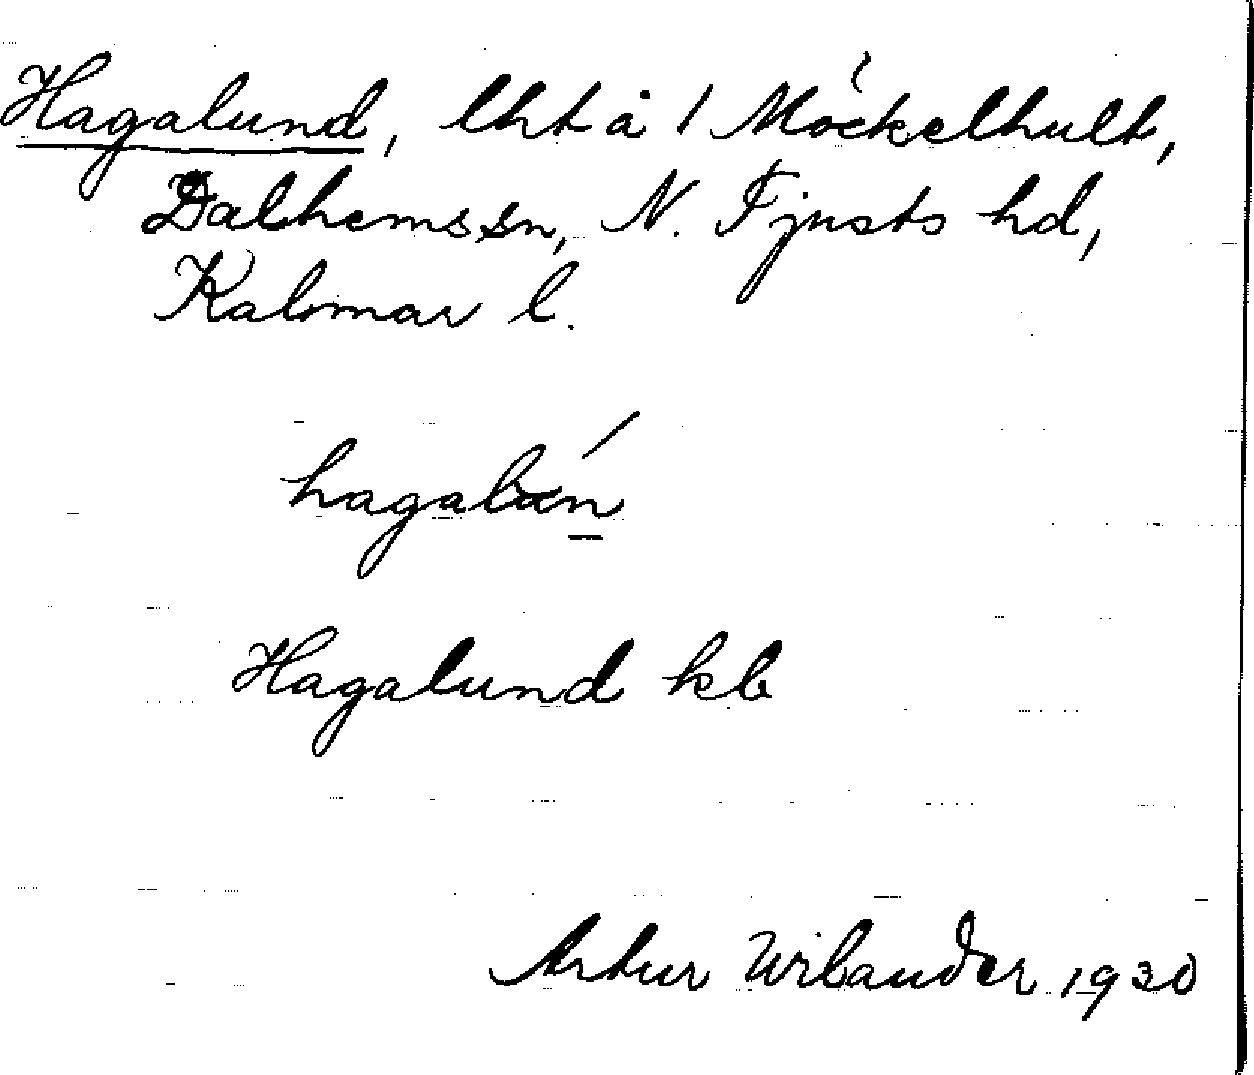 Hagalund, lht å 1 Möckelhult,
Dalhems sn, N. Tjusts hd,
Kalmar l.
hagalún
Hagalund kb
Artur Wilander 1930